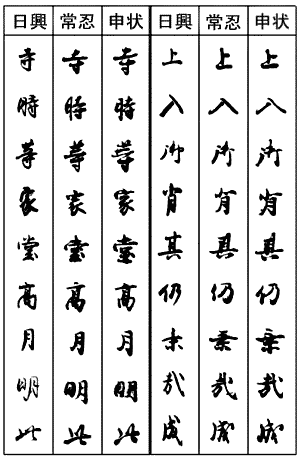 日興 常忍 申状 日興 常忍 申状
寺 寺 寺 上 上 上
時 時 時 入 入 入
等 等 等 所 所 所
家 家 家
其 其 其
高 高 高 仍 仍 仍
月 月 月
明 明 明 哉 哉 哉
此 此 此 成 成 成